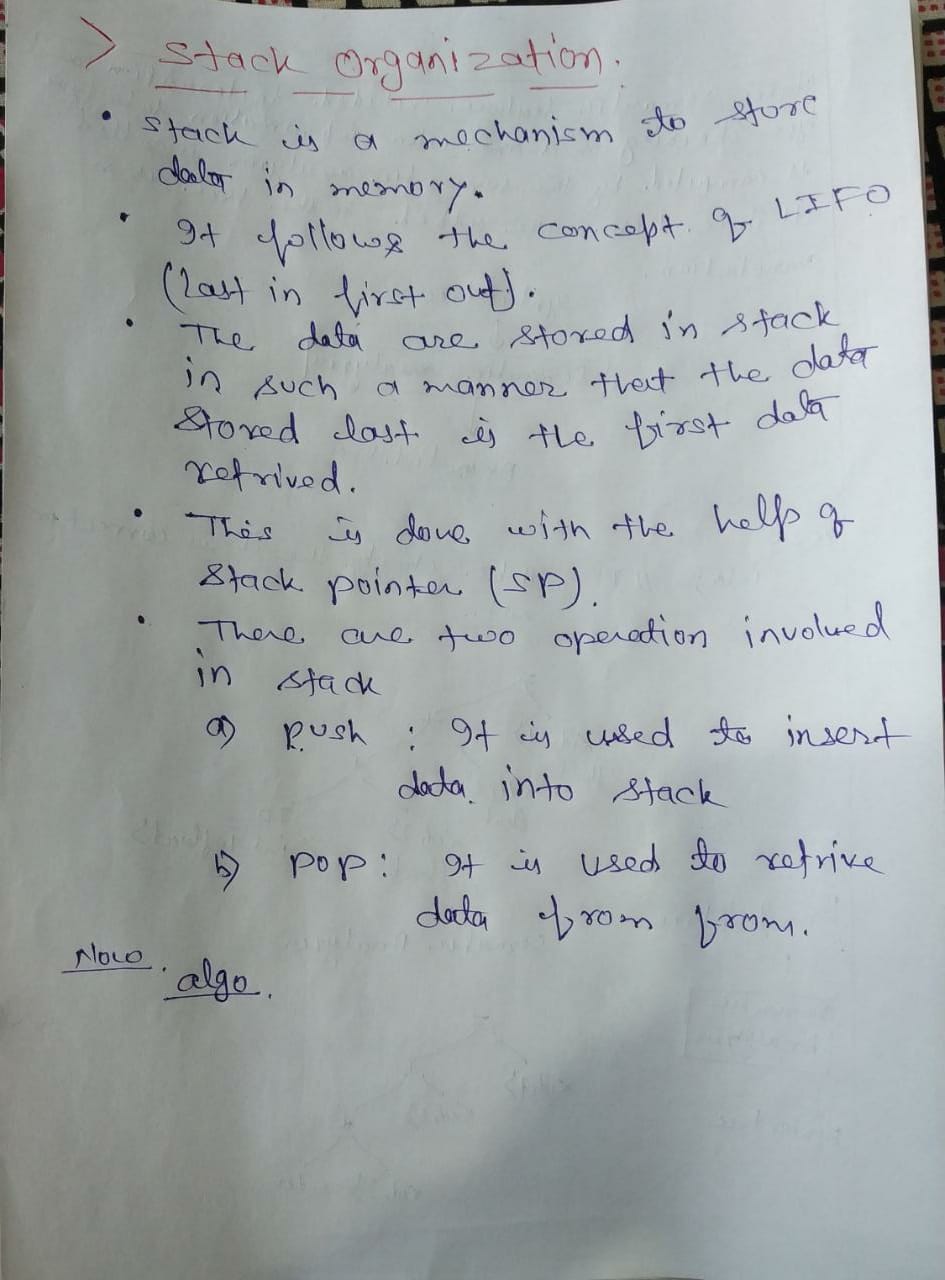 > Stack Organization.
• Stack is a mechanism to store
data in memory.
• It follows the concept of LIFO
(Last in first out).
• The data are stored in stack
in such a manner that the data
stored last is the first data
retrived.
• This is done with the help of
Stack pointer (SP).
• There are two operation involved
in stack
a) PUSH : It is used to insert
data into stack
b) POP : It is used to retrive
data from from.
Now.
algo.